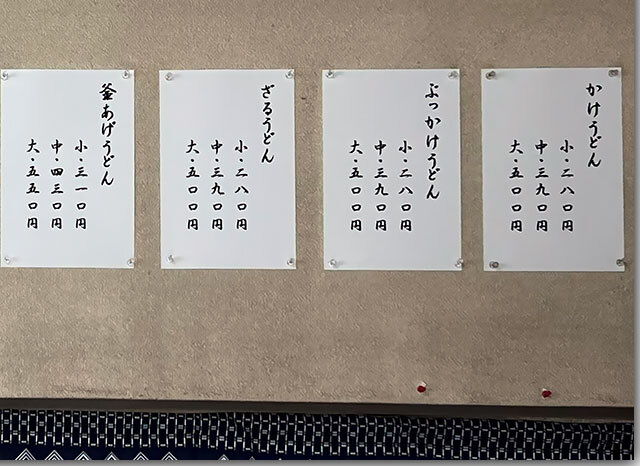 かけうどん
小・二八〇円
中・三九〇円
大・五〇〇円
ぶっかけうどん
小・二八〇円
中・三九〇円
大・五〇〇円
ざるうどん
小・二八〇円
中・三九〇円
大・五〇〇円
釜あげうどん
小・三一〇円
中・四三〇円
大・五五〇円